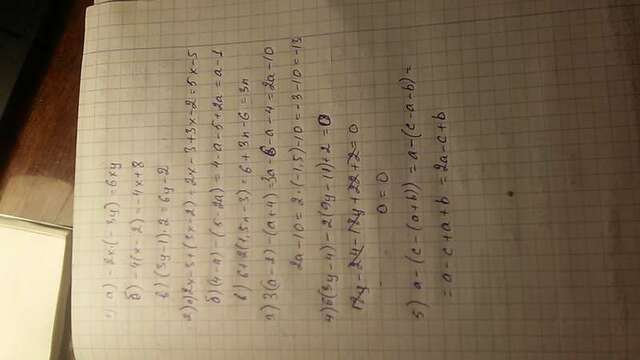 1) а) -2x·(-3y) = 6xy
б) -4(x-2) = -4x+8
в) (3y-1)·2 = 6y-2
2) а) 2x-3+(3x-2) = 2x-3+3x-2 = 5x-5
б) (4-a)-(5-2a) = 4-a-5+2a = a-1
в) 6+2(1,5n-3) = 6+3n-6 = 3n
3) 3(a-2)-(a+4) = 3a-6-a-4 = 2a-10
2a-10 = 2·(-1,5)-10 = -3-10 = -13
4) 6(3y-4)-2(9y-11)+2 = 0
18y-24-18y+22+2 = 0
0 = 0
5) a-(c-(a+b)) = a-(c-a-b) =
= a-c+a+b = 2a-c+b